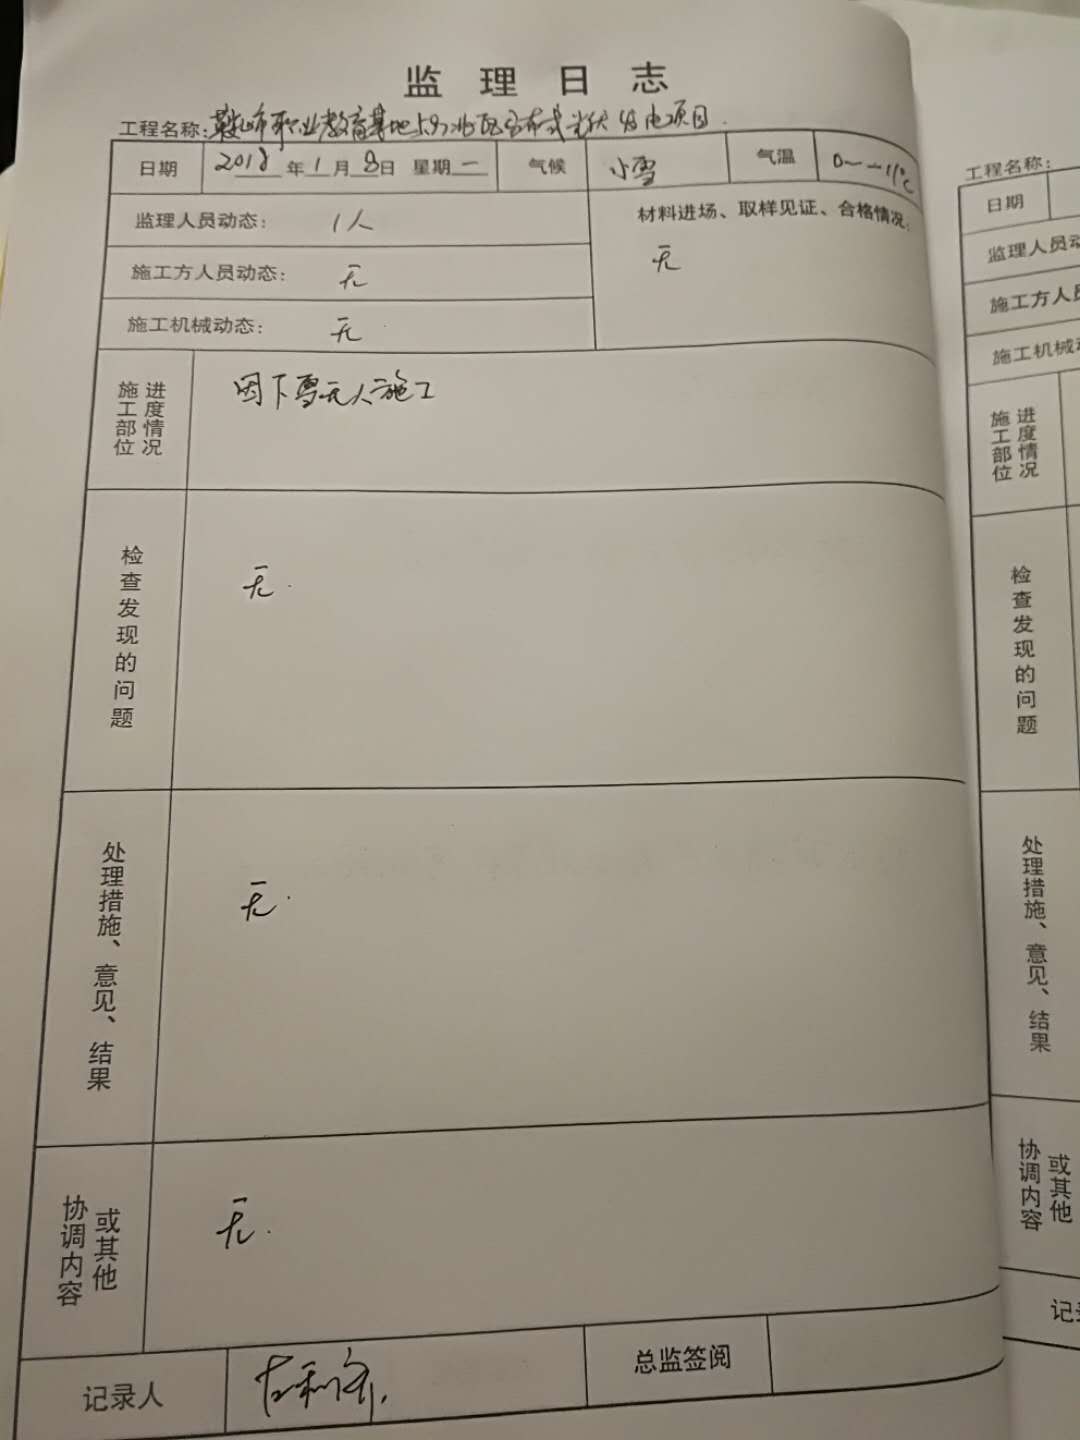 监理日志
工程名称：鞍山市职业教育基地5.9兆瓦分布式光伏发电项目
日期 2018年1月8日 星期一 气候 小雪 气温 0~-11℃
监理人员动态： 1人
材料进场、取样见证、合格情况：
无
施工方人员动态： 无
施工机械动态： 无
施工部位进度情况
因下雪无人施工
检查发现的问题
无.
处理措施、意见、结果
无.
协调内容或其他
无.
记录人
总监签阅
工程名称：
日期
监理人员动
施工方人员
施工机械动
施工部位进度情况
检查发现的问题
处理措施、意见、结果
协调内容或其他